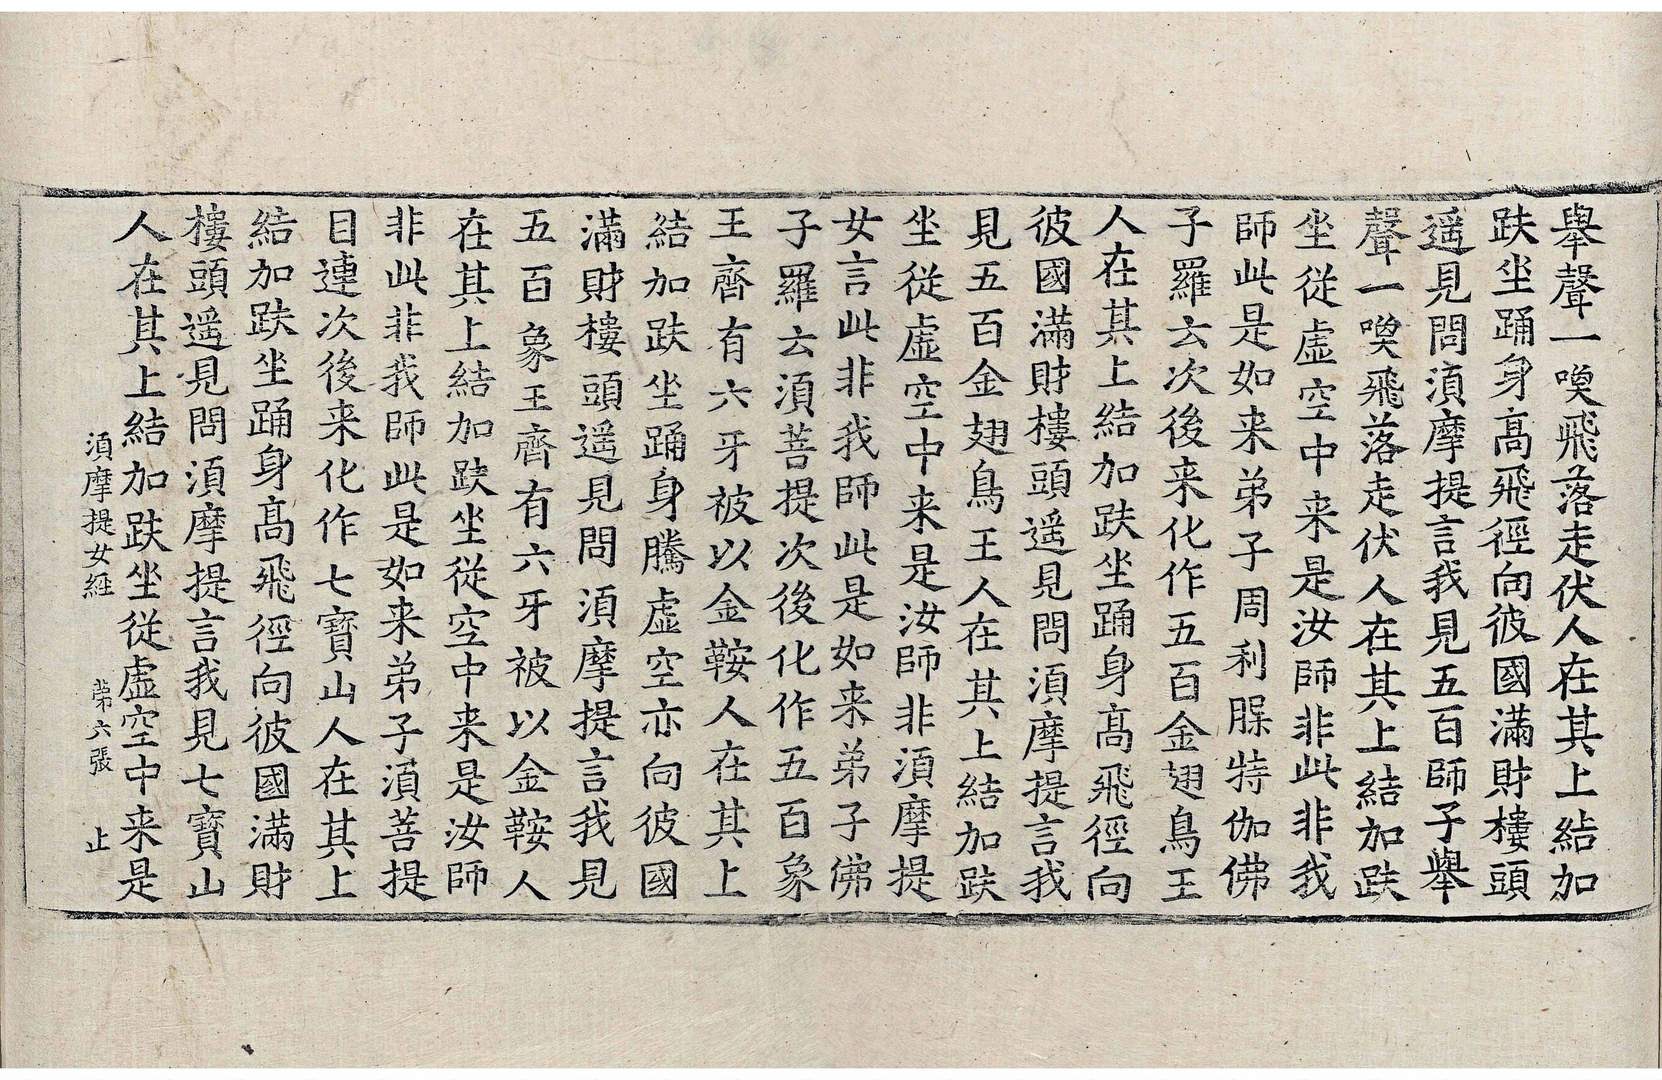 舉聲一喚飛落走伏人在其上結加
趺坐踊身髙飛徑向彼國滿財樓頭
遥見問湏摩提言我見五百師子舉
聲一喚飛落走伏人在其上結加趺
坐從虛空中来是汝師非此非我
師此是如来弟子周利䐗特伽佛
子羅云次後来化作五百金翅鳥王
人在其上結加趺坐踊身髙飛徑向
彼國滿財樓頭遥見問湏摩提言我
見五百金翅鳥王人在其上結加趺
坐從虛空中来是汝師非湏摩提
女言此非我師此是如来弟子佛
子羅云湏菩提次後化作五百象
王齊有六牙被以金鞍人在其上
結加趺坐踊身騰虛空亦向彼國
滿財樓頭遥見問湏摩提言我見
五百象王齊有六牙被以金鞍人
在其上結加趺坐從空中来是汝師
非此非我師此是如来弟子湏菩提
目連次後来化作七寶山人在其上
結加趺坐踊身髙飛徑向彼國滿財
樓頭遥見問湏摩提言我見七寶山
人在其上結加趺坐從虛空中来是
湏摩提女經 第六張 止